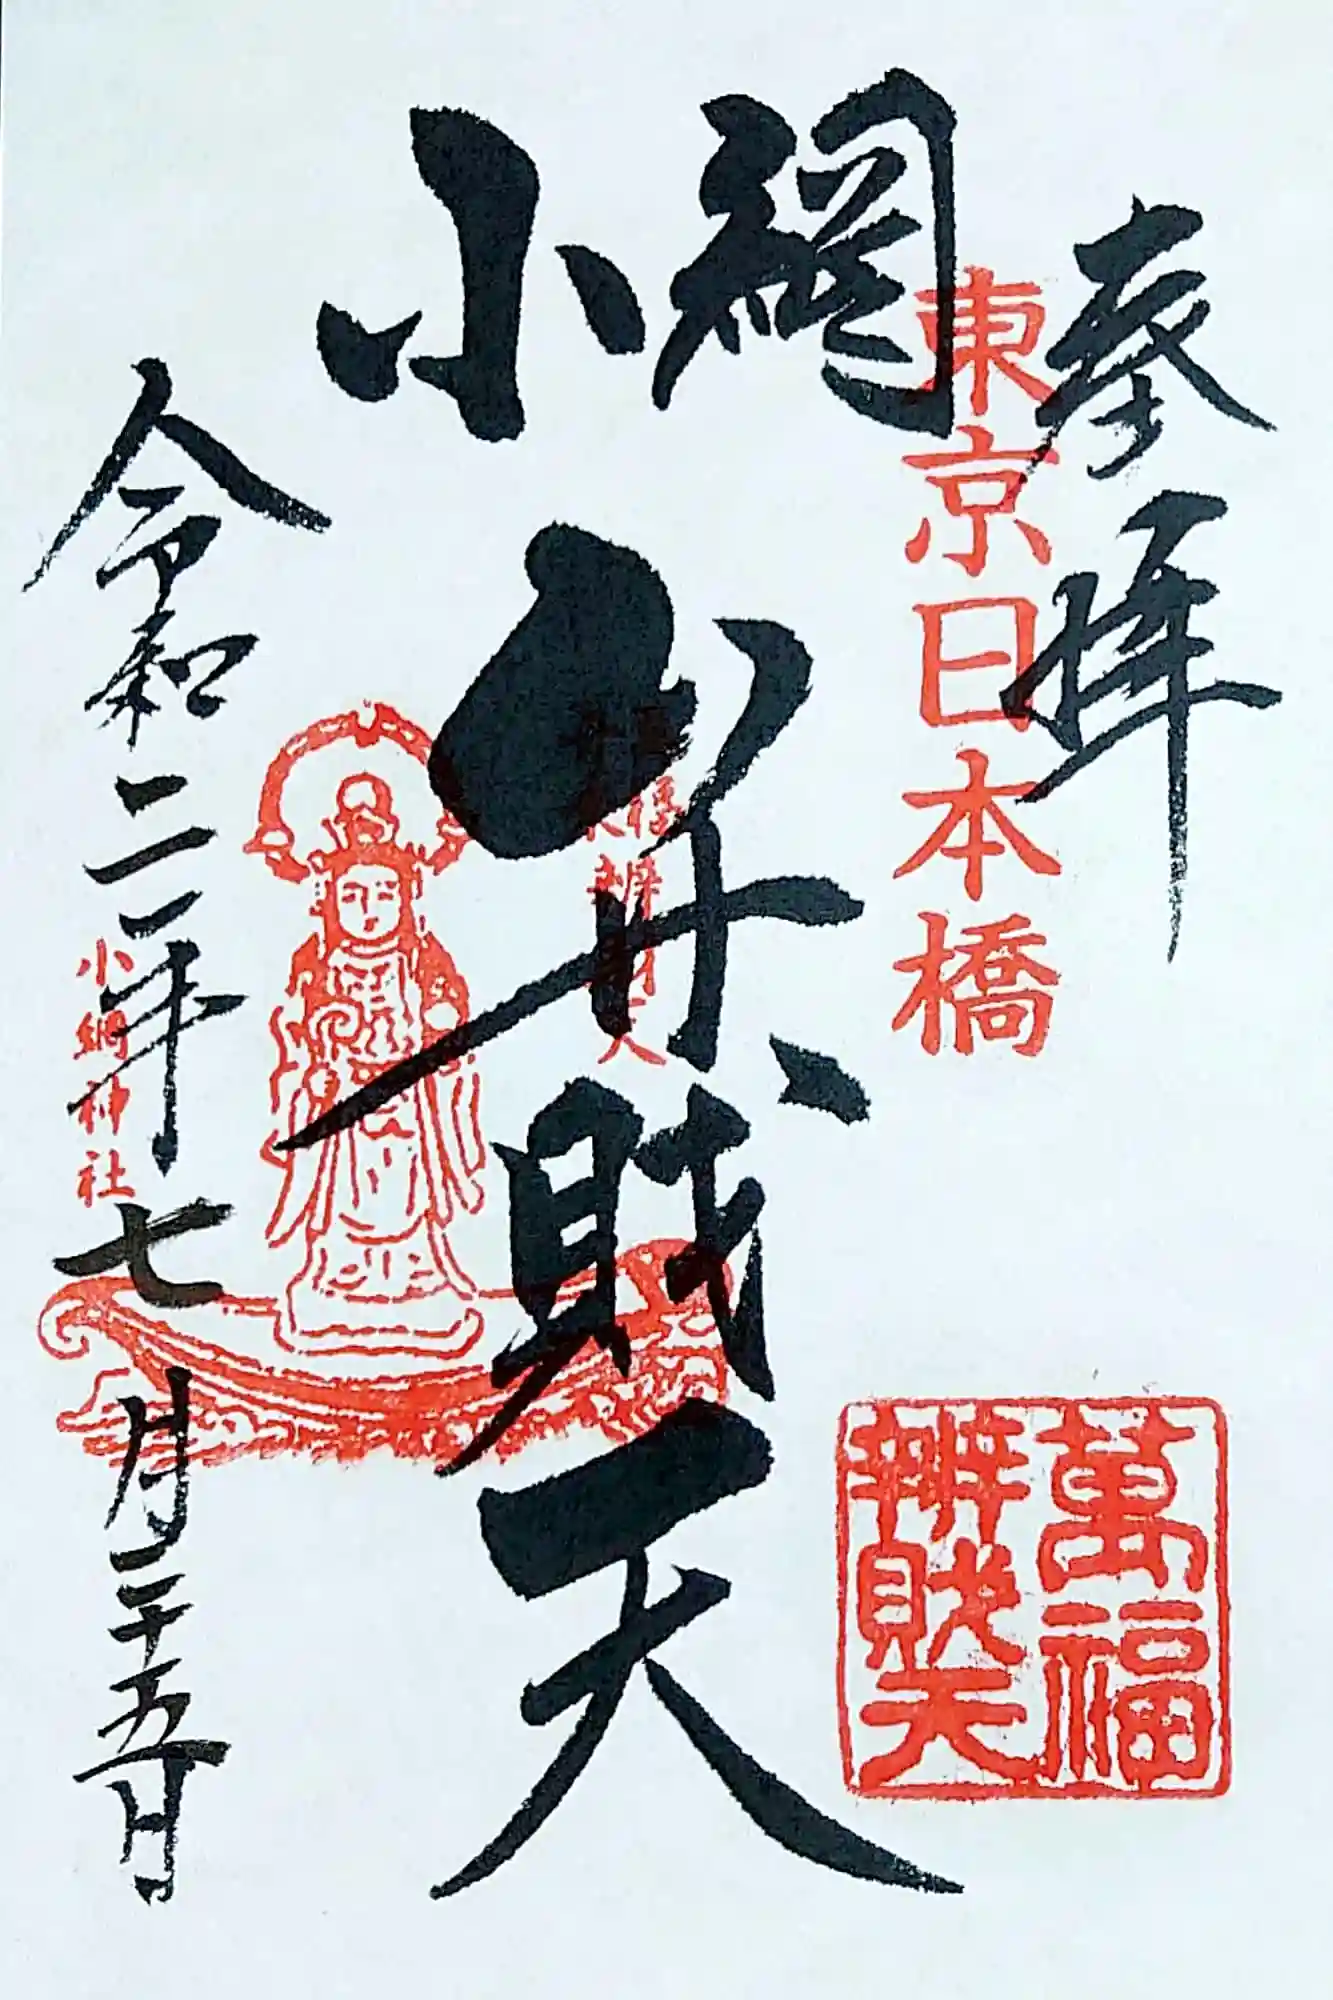 奉拝
東京日本橋
小網
弁財天
萬福
辨財天
萬福
辨財天
令和二年七月二十五日
小網神社